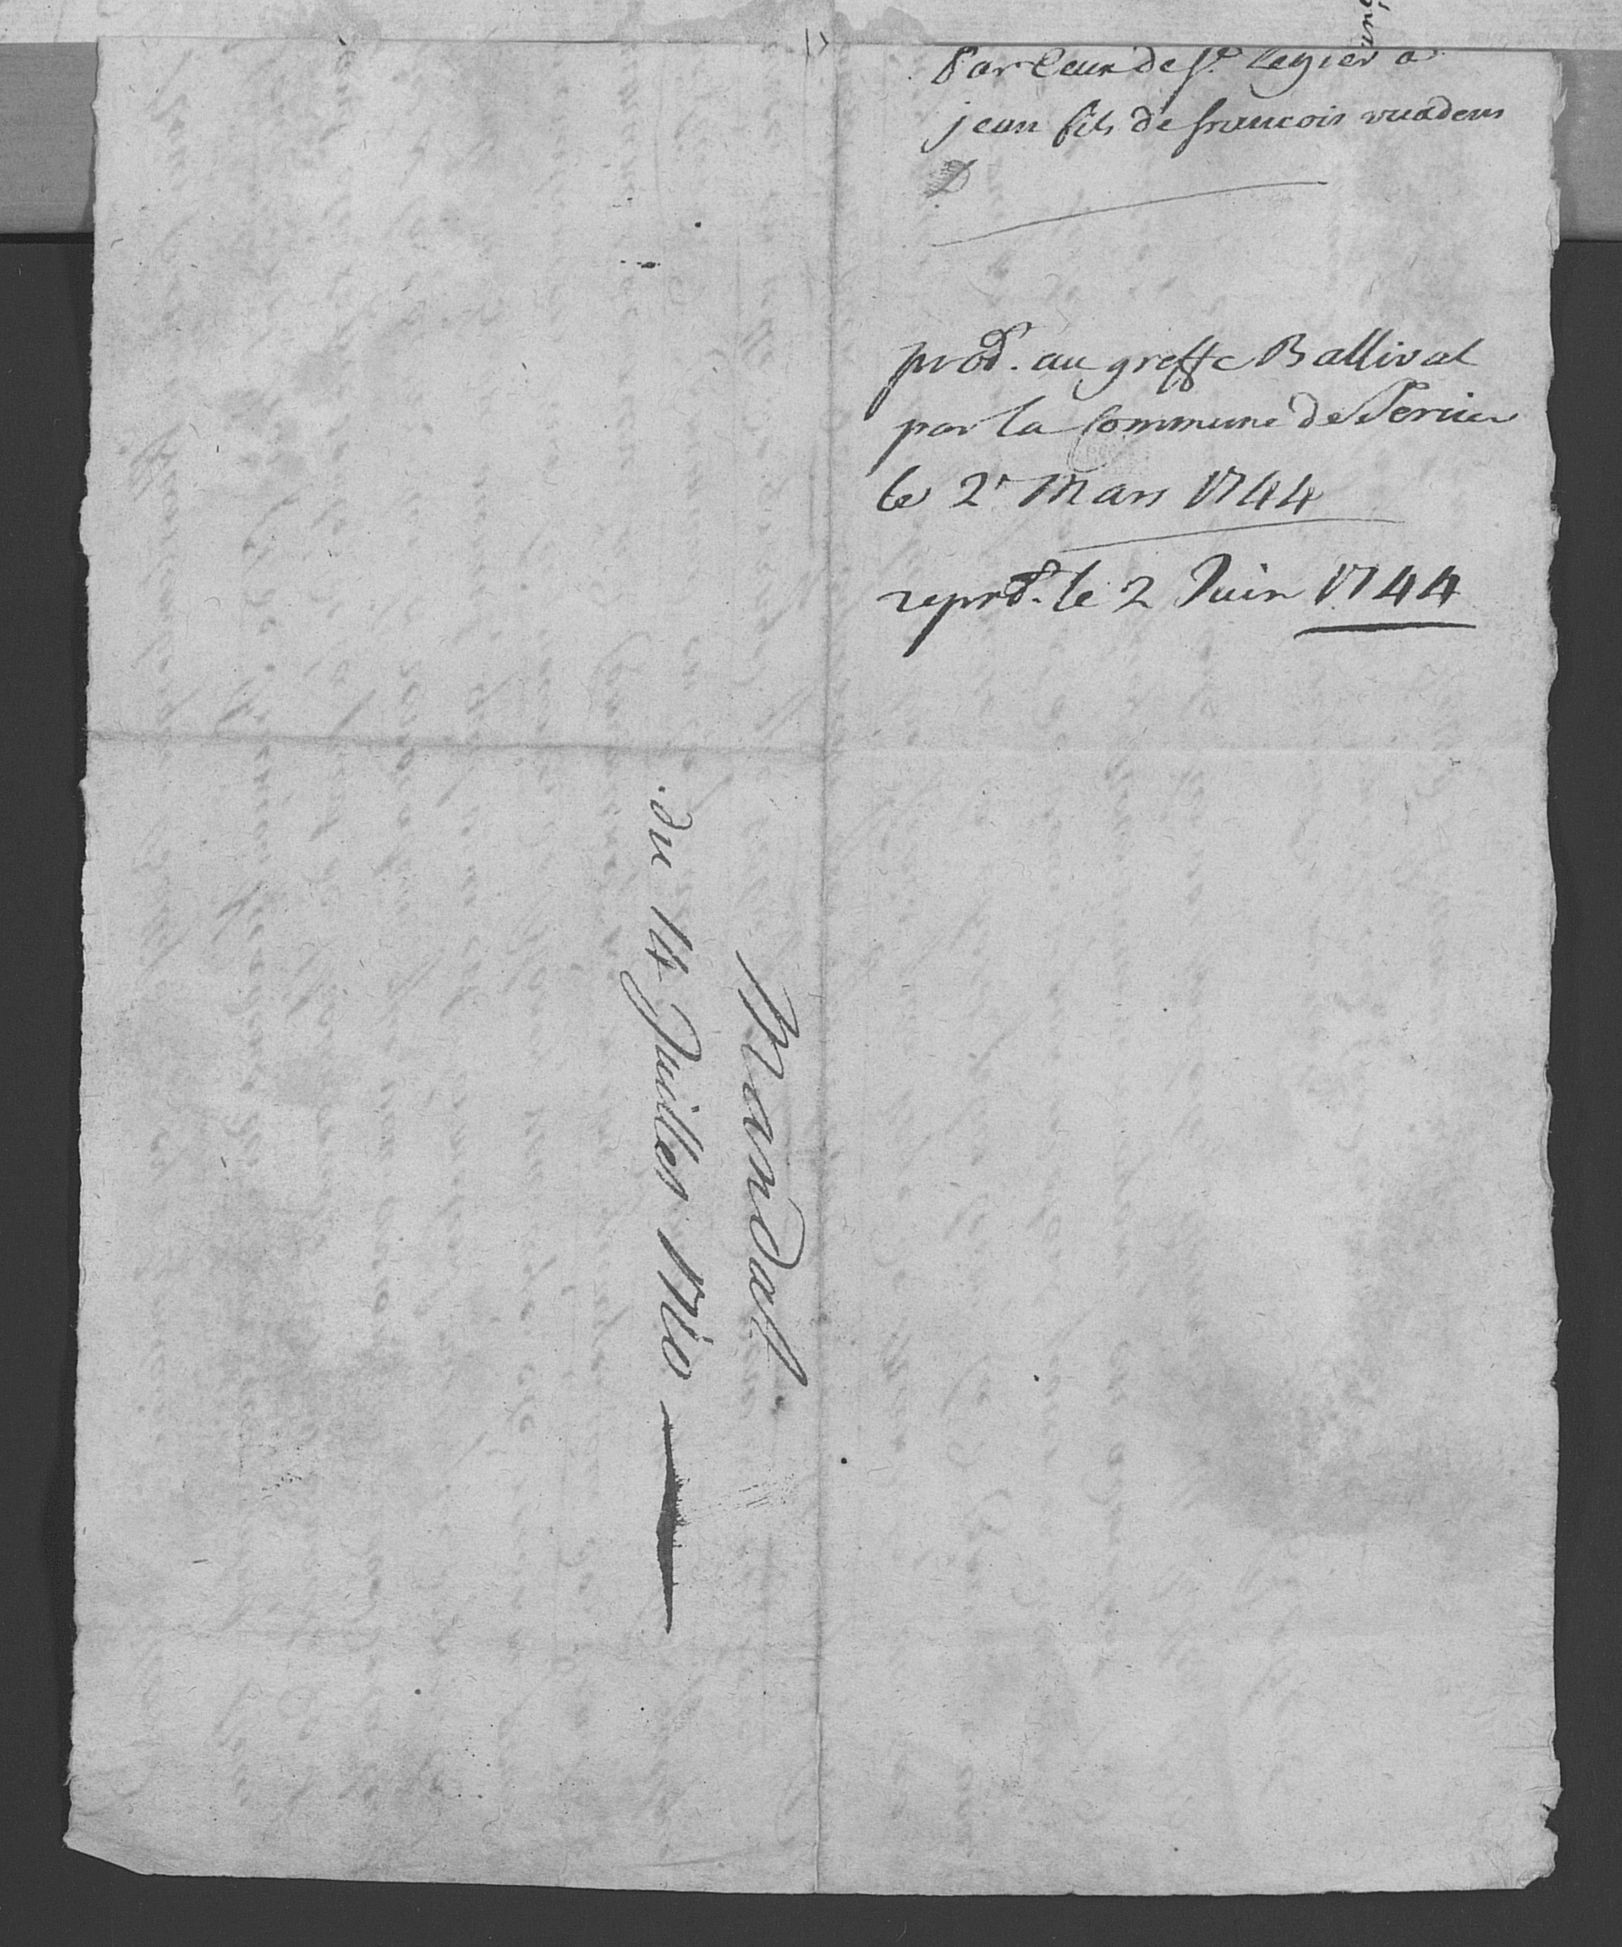 Par Ceux de St. Legier a
jean fils de francois vuadens
prod. au greffe Ballival
par la Commune de
le 2e Mars 1744
reprod. le 2 Juin 1744
Mandat
du 14 Juillet 1710